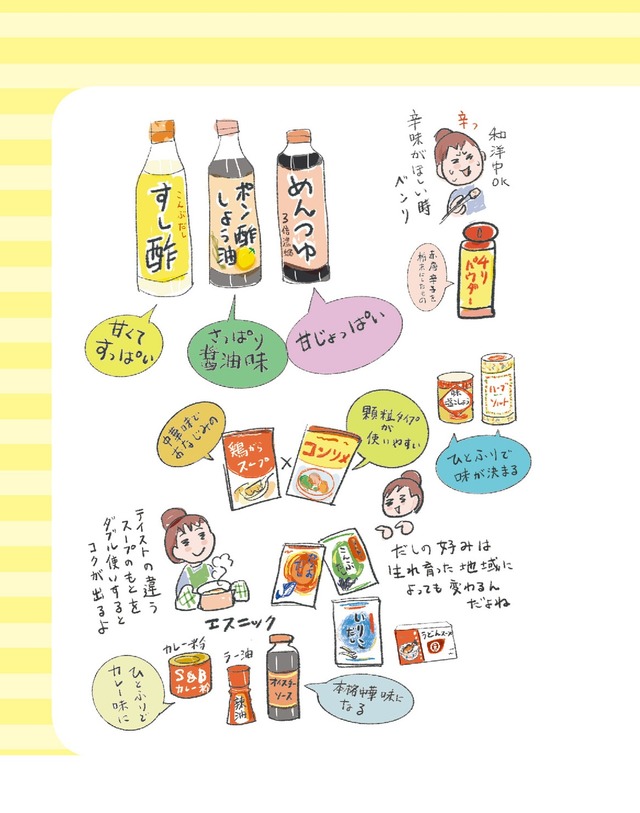 こんぶだし
すし酢
ポン酢
しょう油
めんつゆ
3倍濃縮
甘くて
すっぱい
さっぱり
醤油味
甘じょっぱい
辛っ
和洋中OK
辛味がほしい時
ベンリ
チリ
パウダー
赤唐辛子を
粉末にしたもの
中華味で
おなじみの
鶏がら
スープ
×
コンソメ
顆粒タイプ
が
使いやすい
味
塩こしょう
ハーブ
ソルト
ひとふりで
味が決まる
テイストの違う
スープのもとを
ダブル使いすると
コクが出るよ
こんぶ
だし
いりこ
だし
うどんスープ
だしの好みは
生れ育った地域に
よっても変わるん
だよね
エスニック
カレー粉
S&B
カレー粉
ひとふりで
カレー味に
ラー油
辣油
オイスター
ソース
本格中華味に
なる